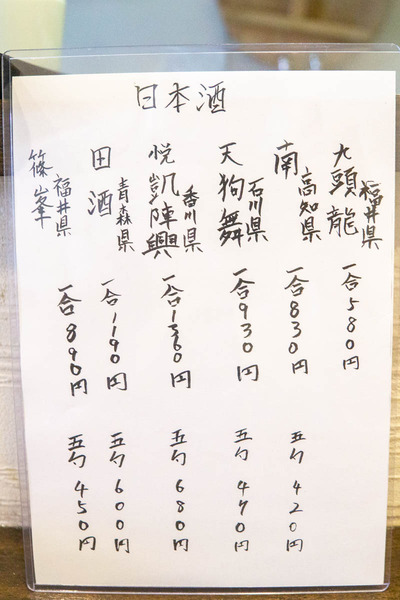 日本酒
九頭龍
福井県
一合580円
南
高知県
一合830円
五勺420円
天狗舞
石川県
一合930円
五勺470円
悦凱陣興
香川県
一合1360円
五勺680円
田酒
青森県
一合1190円
五勺600円
篠峯
福井県
一合890円
五勺450円